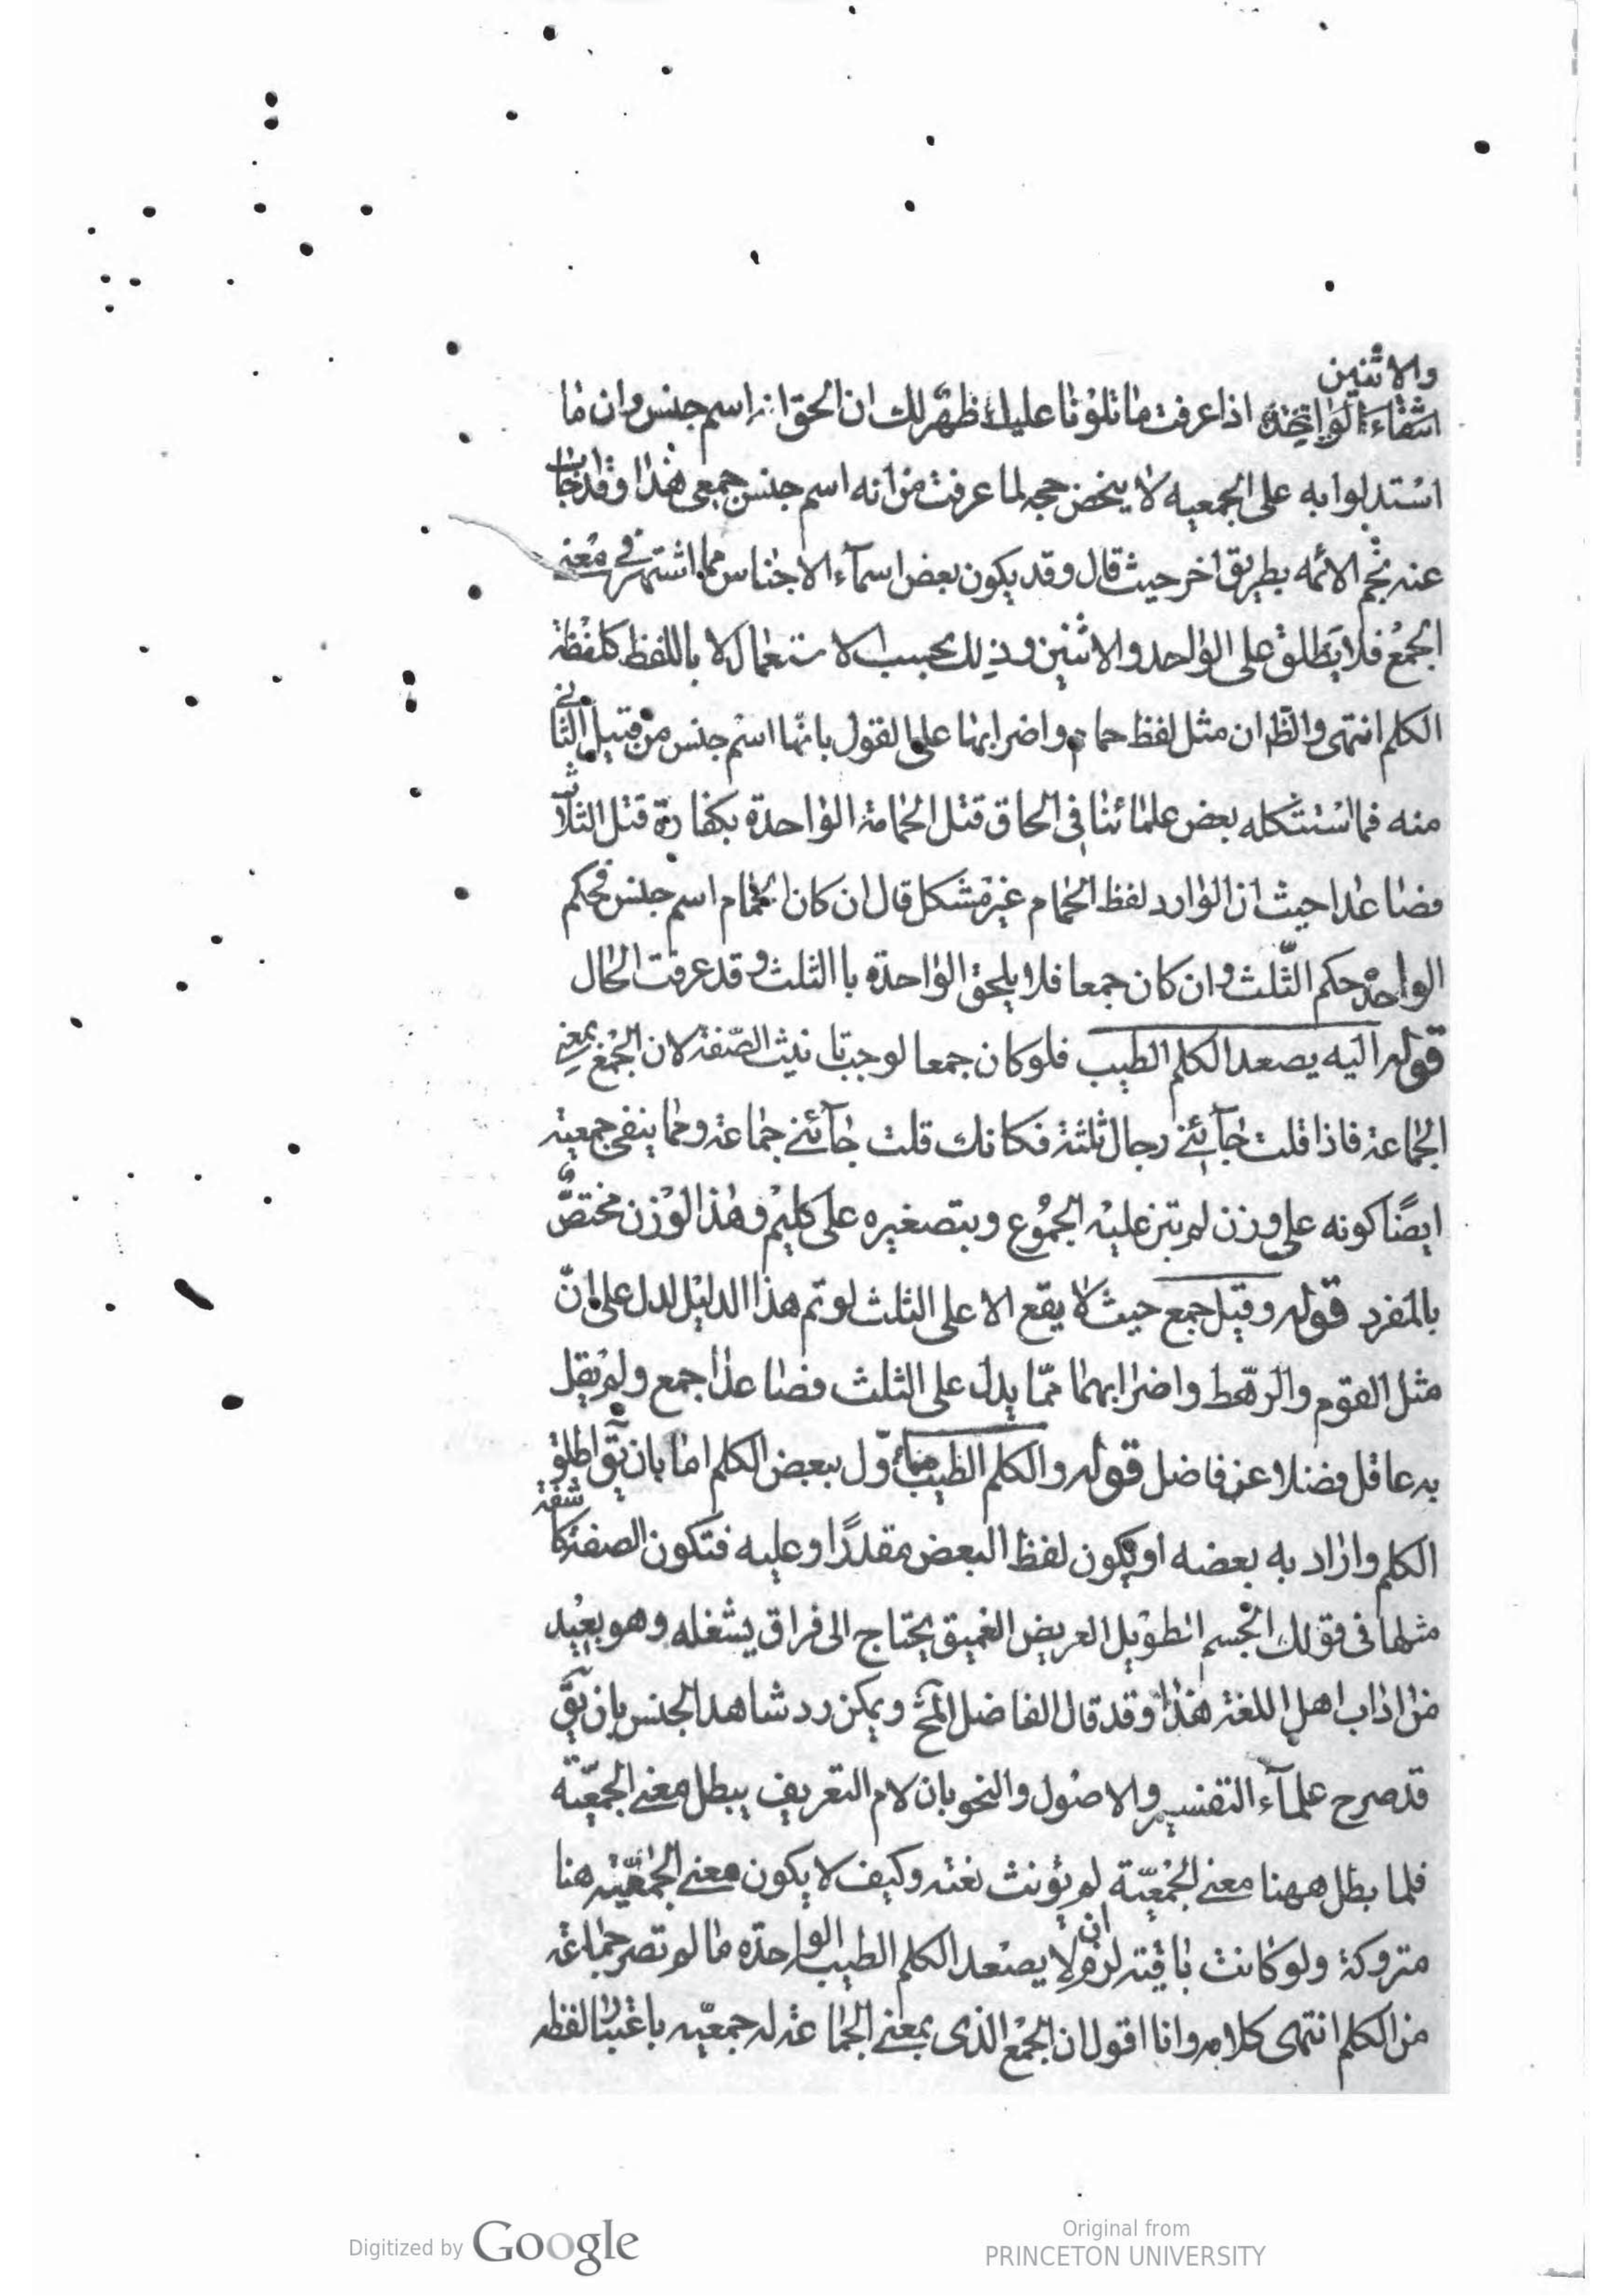 والاثنين
انتفاء الواحدة اذا عرفت ما تلونا عليك ظهر لك ان الحق انه اسم جنس وان ما
استدلوا به على الجمعيه لا ينحض حجه لما عرفت من انه اسم جنس جمعى هذا وقد اجاب
عنه نجم الائمه بطريق اخر حيث قال وقد يكون بعض اسمآء الاجناس مما اشتهر فى معنى
الجمع فلا يطلق على الواحد والاثنين وذلك بحسب الاستعمال لا باللفظ كلفظة
الكلم انتهى والظ ان مثل لفظ حمام واضرابها على القول بانها اسم جنس من قبيل الثانى
منه فما استشكله بعض علمائنا فى الحاق قتل الحمامة الواحدة بكفارة قتل الثلاث
فصاعدا حيث ان الوارد لفظ الحمام غير مشكل قال ان كان الحمام اسم جنس فحكم
الواحد حكم الثلث وان كان جمعا فلا يلحق الواحدة باالثلث وقد عرفت الحال
قوله اليه يصعد الكلم الطيب فلو كان جمعا لوجب تانيث الصفة لان الجمع بمعنى
الجماعة فاذا قلت جآئنى رجال ثلثة فكانك قلت جآئنى جماعة ومما ينفى جمعيته
ايضًا كونه على وزن لم تبن عليه الجموع وبتصغيره على كليم وهذا الوزن مختصّ
بالمفرد قوله وقيل جمع حيث لا يقع الا على الثلث لو تم هذا الدليل لدل على انّ
مثل القوم والرهط واضرابهما ممّا يدل على الثلث فصاعدا جمع ولم يقل
به عاقل فضلا عن فاضل قوله والكلم الطيب مأوّل ببعض الكلم اما بان يق اطلق
الكلم واراد به بعضه او يكون لفظ البعض مقدرًا وعليه فتكون الصفة كاشفة
مثلها فى قولك الجسم الطويل العريض العميق يحتاج الى فراق يشغله وهو بعيد
من اداب اهل اللغة هذا وقد قال الفاضل المح ويمكن رد شاهد الجنس بان يق
قد صرح علمآء التفسير والاصول والنحو بان لام التعريف يبطل معنى الجمعيّة
فلما بطل ههنا معنى الجمعيّة لم يؤنث نعته وكيف لا يكون معنى الجمعيّة هنا
متروكة ولو كانت باقية لزم ان لا يصعد الكلم الطيب الواحدة ما لم تصر جماعة
من الكلم انتهى كلامه وانا اقول ان الجمع الذى بمعنى الجماعة له جمعيّه باعتبار لفظه
Digitized by Google
Original from
PRINCETON UNIVERSITY